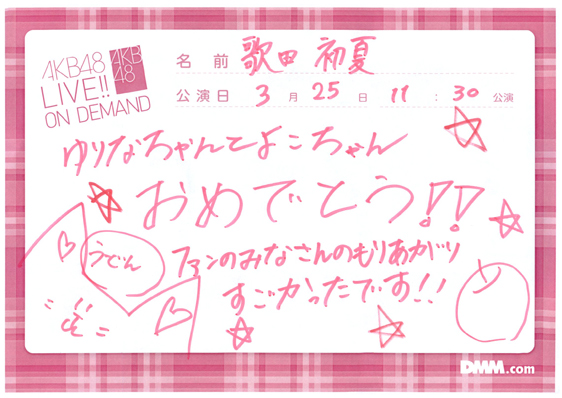 AKB48
LIVE!!
ON DEMAND
AKB
48
名前 歌田 初夏
公演日 3月25日 11:30公演
ゆりなちゃんとよこちゃん
おめでとう!!
うでん
ファンのみなさんのもりあがり
すごかったです!!
DMM.com